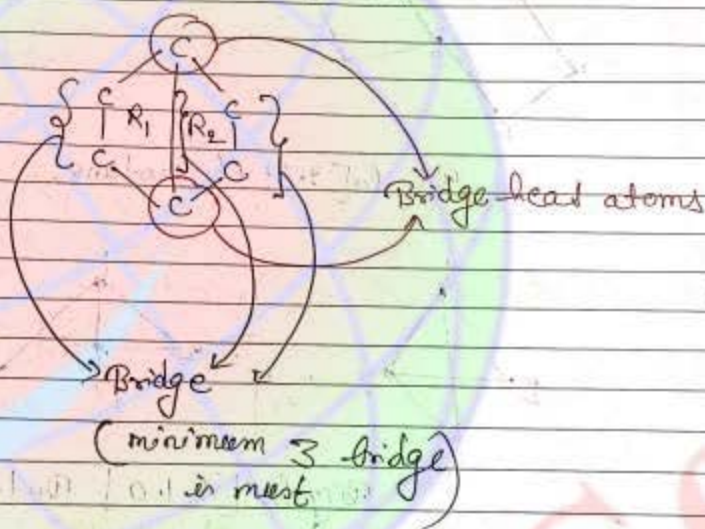 C
C R1 R2 C
C C
C
Bridge head atoms
Bridge
(minimum 3 bridge)
is must